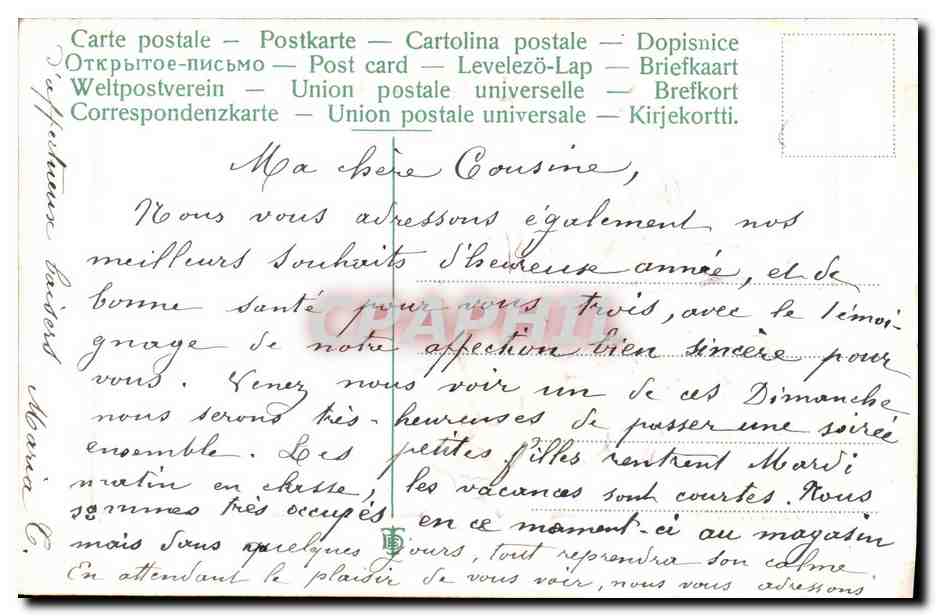 Carte postale — Postkarte — Cartolina postale — Dopisnice
Открытое-письмо — Post card — Levelező-Lap — Briefkaart
Weltpostverein — Union postale universelle — Brefkort
Correspondenzkarte — Union postale universale — Kirjekortti.
Ma chère Cousine,
Nous vous adressons également nos
meilleurs souhaits d'heureuse année, et de
bonne santé pour vous trois, avec le témoi-
gnage de notre affection bien sincère pour
vous. Venez nous voir un de ces Dimanche,
nous serons très-heureuses de passer une soirée
ensemble. Les petites filles rentrent Mardi
matin en classe, les vacances sont courtes. Nous
sommes très occupés en ce moment-ci au magasin
mais dans quelques jours, tout reprendra son calme.
En attendant le plaisir de vous voir, nous vous adressons
d'affectueux baisers Maria C.
CPAPHIL